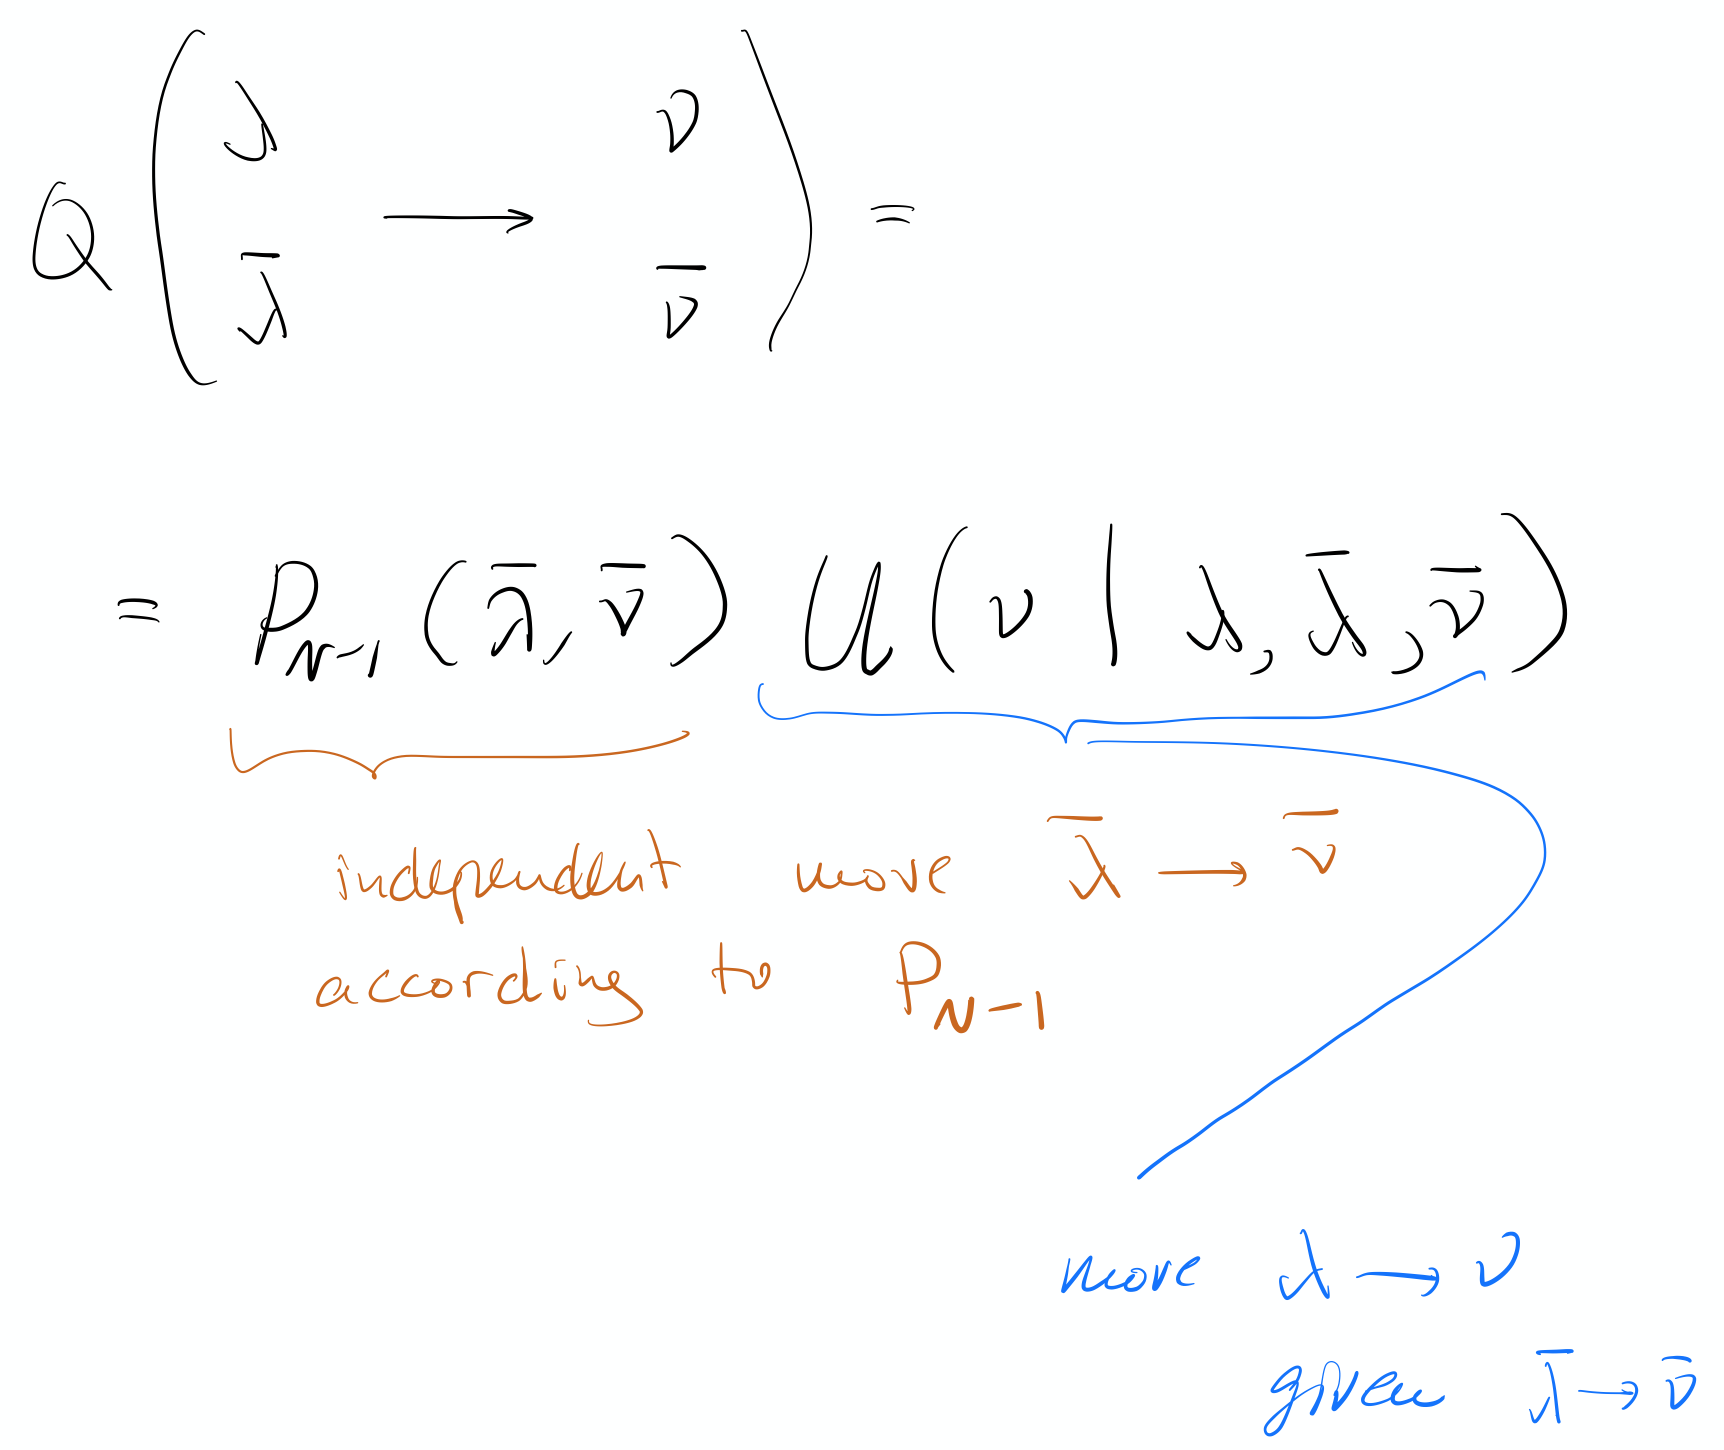 Q ( λ → ν ) =
λ̄ ν̄
= P_{N-1} ( λ̄, ν̄ ) U ( ν | λ, λ̄, ν̄ )
independent move λ̄ → ν̄
according to P_{N-1}
move λ → ν
given λ̄ → ν̄